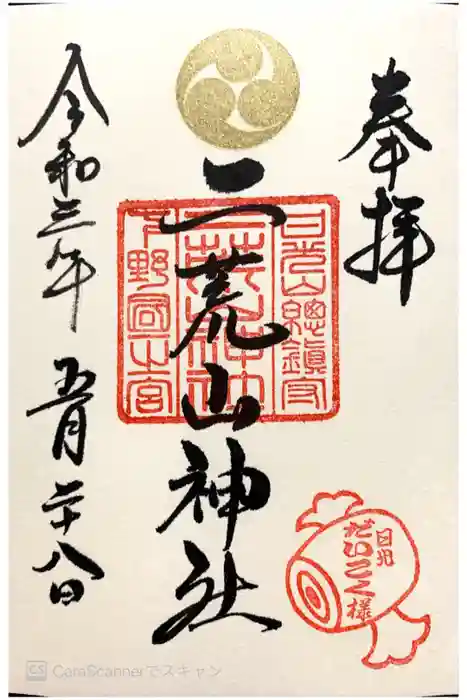 奉拝
日光山總鎮守
二荒山神社
下野國一之宮
二荒山神社
日光
だいこく様
令和三年五月二十八日
CS CamScannerでスキャン